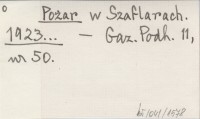 Pożar w Szaflarach.
1923... — Gaz. Podh. 11,
nr 50.
/1041/1578